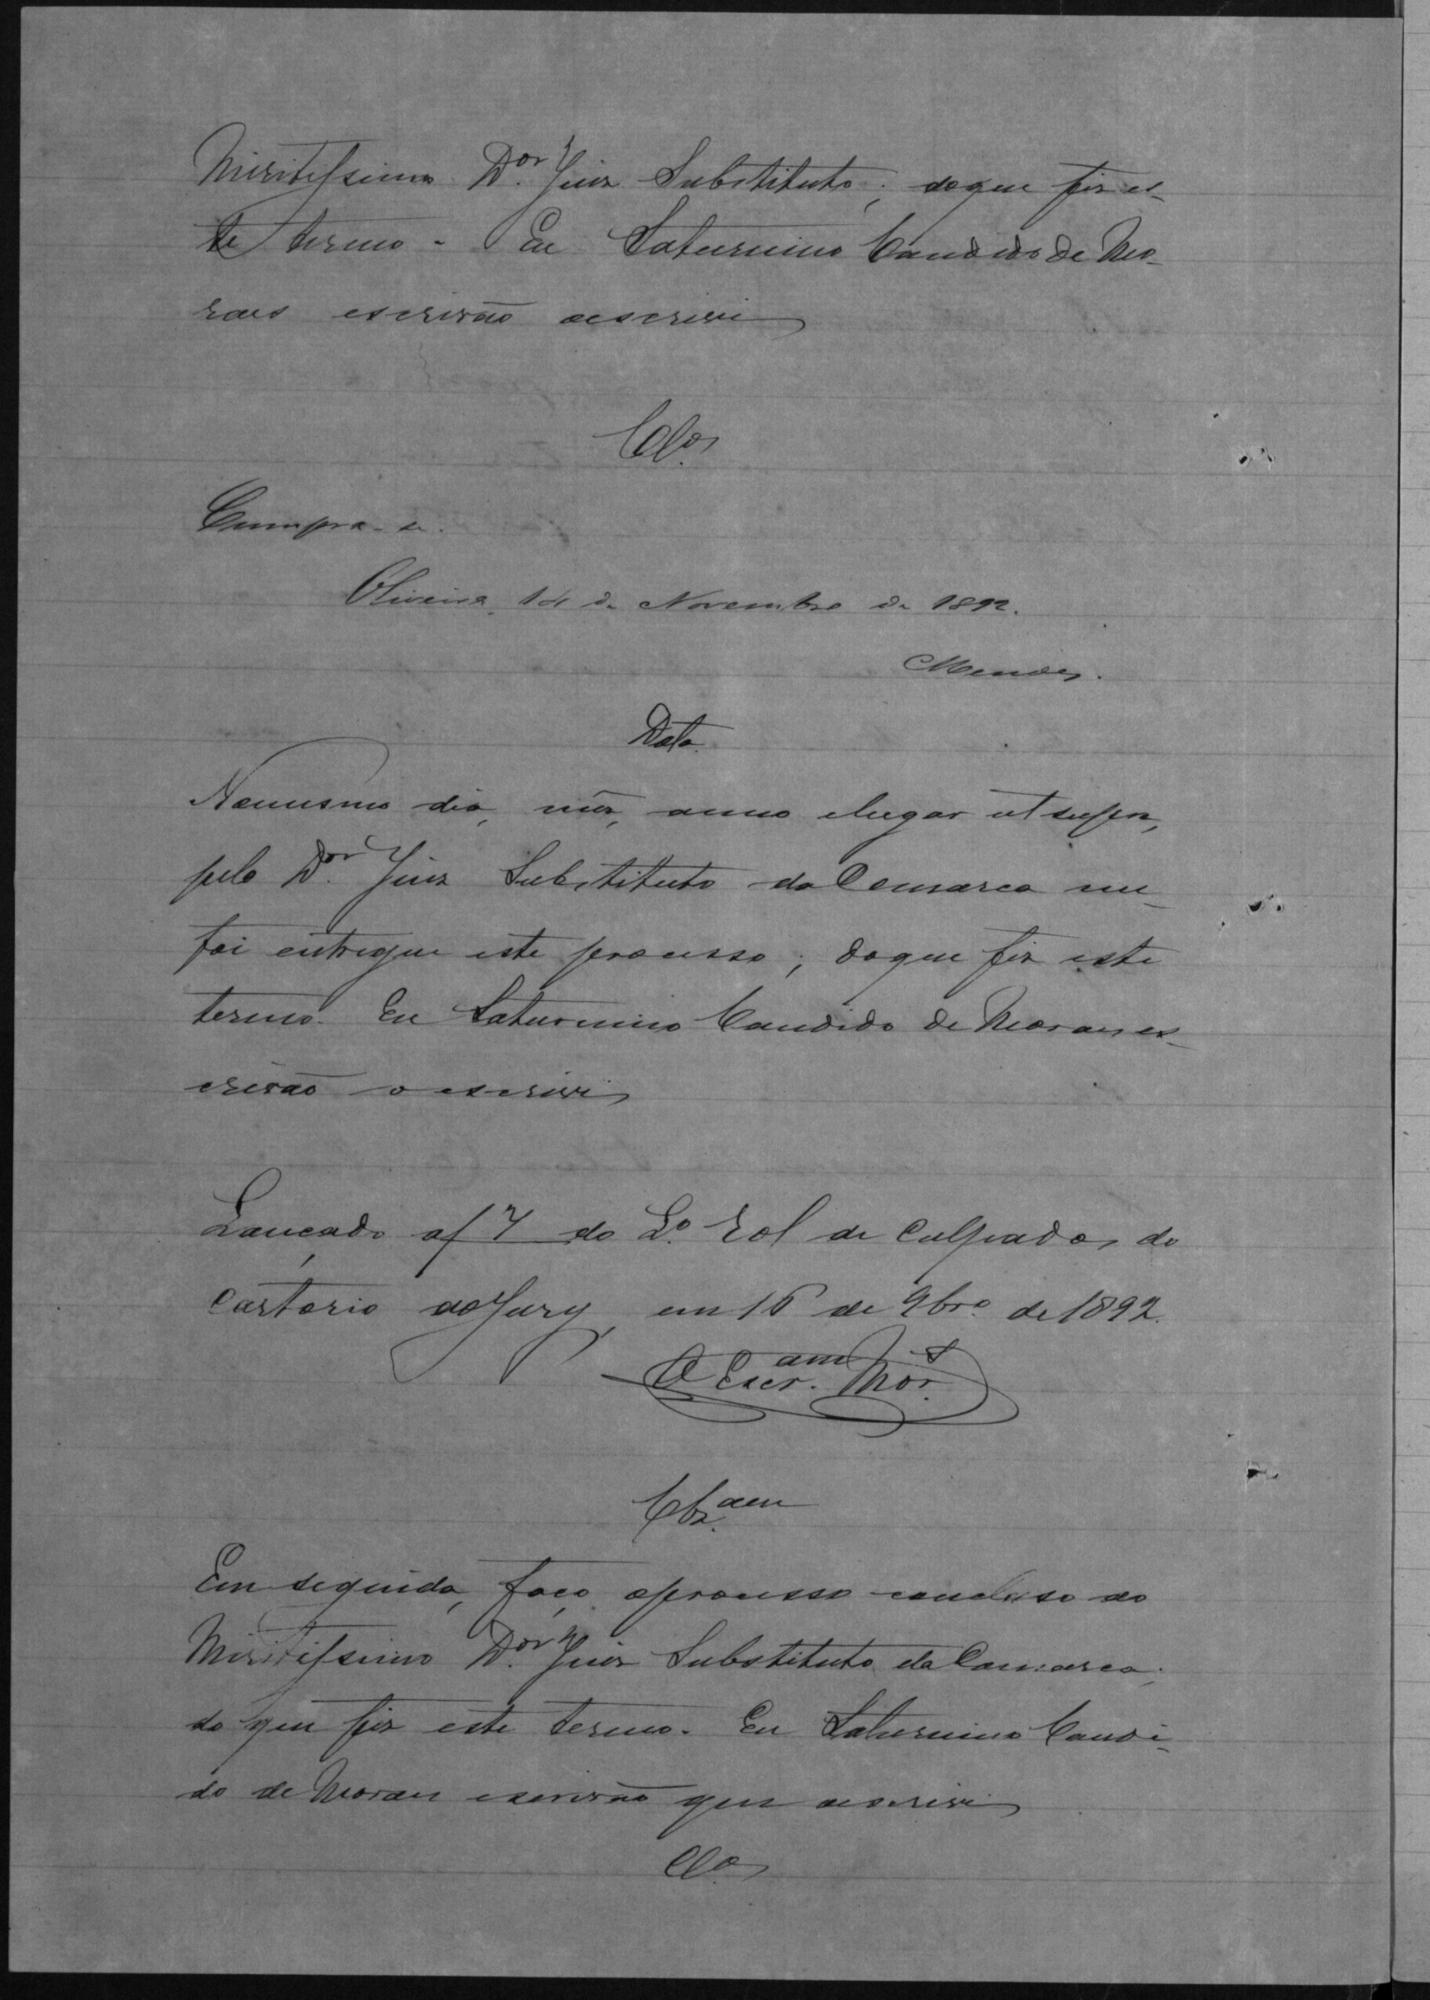 Miritissimo D.or Juiz Substituto; do que fiz es-
te termo. Eu Saturnino Candido de Mo-
raes escrivão o escrivi
Clos
Cumpra-se.
Oliveira, 14 de Novembro de 1892.
Mendes.
Data
No mesmo dia, mêz, anno e lugar ut supra,
pelo D.or Juiz Substituto da Comarca me
foi entregue este processo; do que fiz este
termo. Eu Saturnino Candido de Moraes es-
crivão o escrivi
Lançado a f 7 do L.o rol de culpados do
Cartorio do Jury, em 16 de 9bro. de 1892.
O Escr.am Mor.s
Clz.am
Em seguida, faço o processo concluso ao
Miritissimo D.or Juiz Substituto da Comarca;
do que fiz este termo. Eu Saturnino Candi-
do de Moraes escrivão que o escrivi
Clos